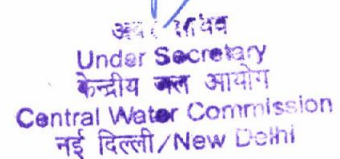 अवर सचिव
Under Secretary
केन्द्रीय जल आयोग
Central Water Commission
नई दिल्ली/New Delhi